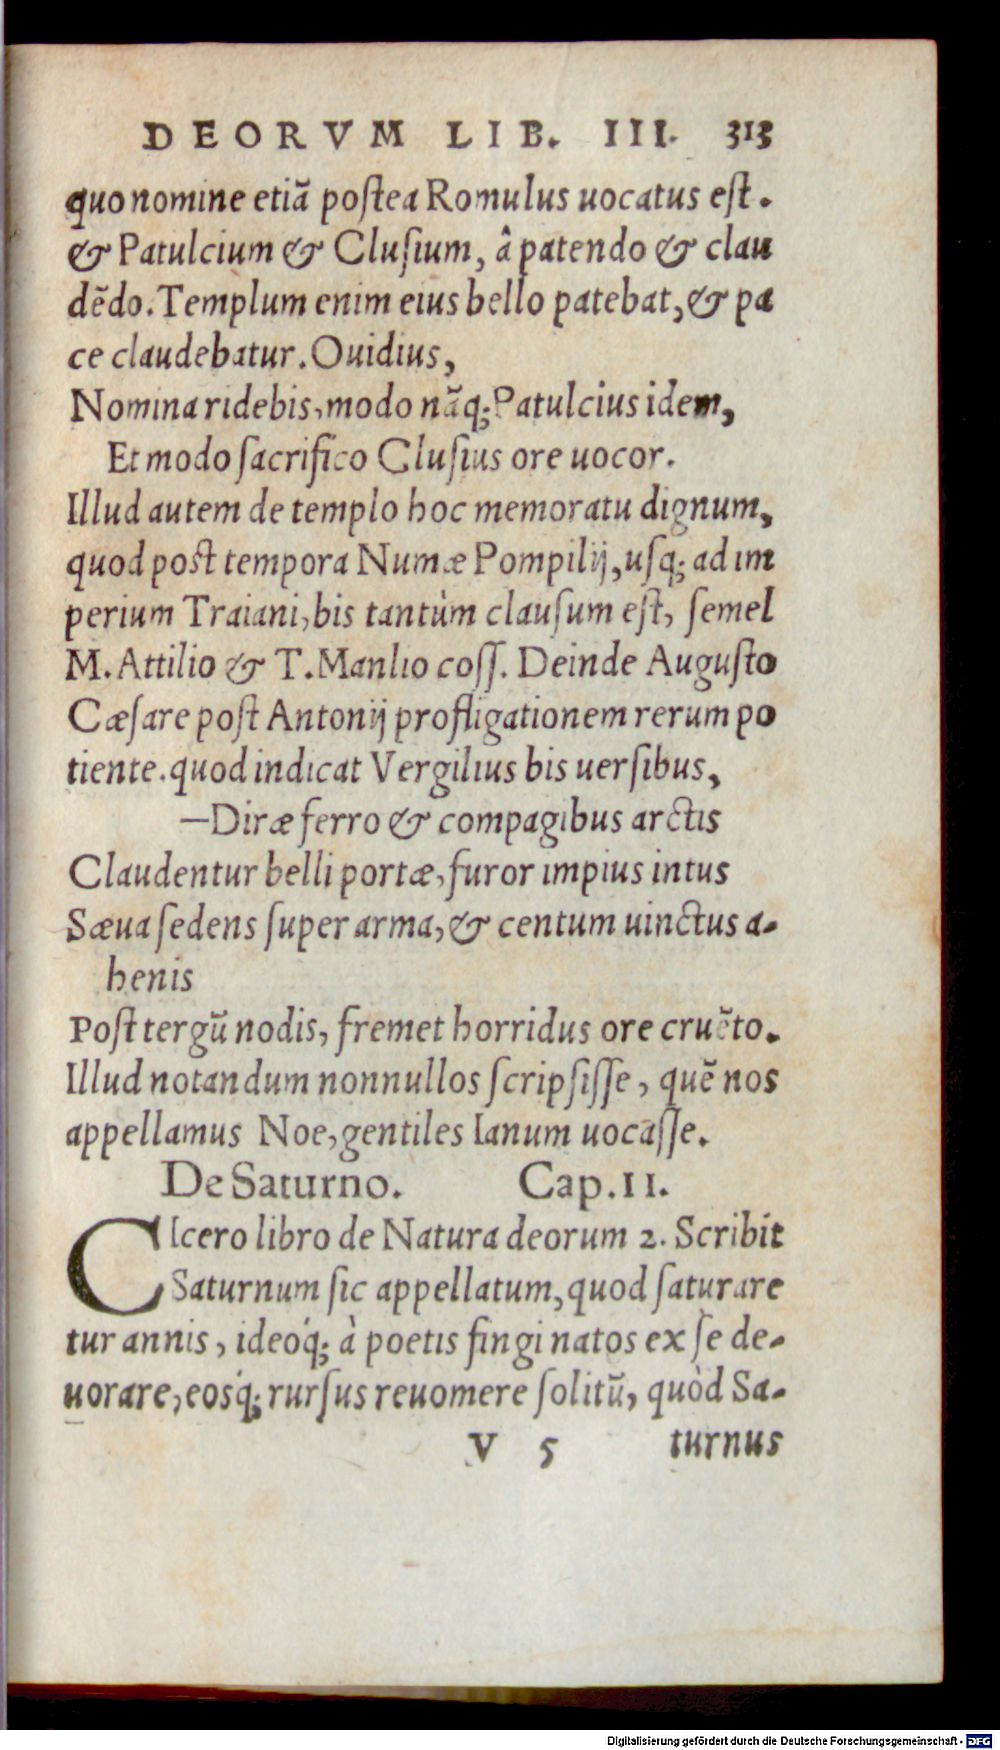 DEORVM LIB. III. 313
quo nomine etiã postea Romulus uocatus est.
& Patulcium & Clusium, â patendo & clau
dẽdo. Templum enim eius bello patebat, & pa
ce claudebatur. Ouidius,
Nomina ridebis, modo nãq; Patulcius idem,
Et modo sacrifico Clusius ore uocor.
Illud autem de templo hoc memoratu dignum,
quod post tempora Numæ Pompilij, usq; ad im
perium Traiani, bis tantùm clausum est, semel
M. Attilio & T. Manlio coss. Deinde Augusto
Cæsare post Antonij profligationem rerum po
tiente. quod indicat Vergilius bis uersibus,
—Diræ ferro & compagibus arctis
Claudentur belli portæ, furor impius intus
Sæua sedens super arma, & centum uinctus a-
henis
Post tergũ nodis, fremet horridus ore cruẽto.
Illud notandum nonnullos scripsisse, quẽ nos
appellamus Noe, gentiles Ianum uocasse.
De Saturno. Cap. II.
CIcero libro de Natura deorum 2. Scribit
Saturnum sic appellatum, quod saturare
tur annis, ideóq; à poetis fingi natos ex se de-
uorare, eosq́; rursus reuomere solitũ, quòd Sa-
V 5 turnus
Digitalisierung gefördert durch die Deutsche Forschungsgemeinschaft - DFG